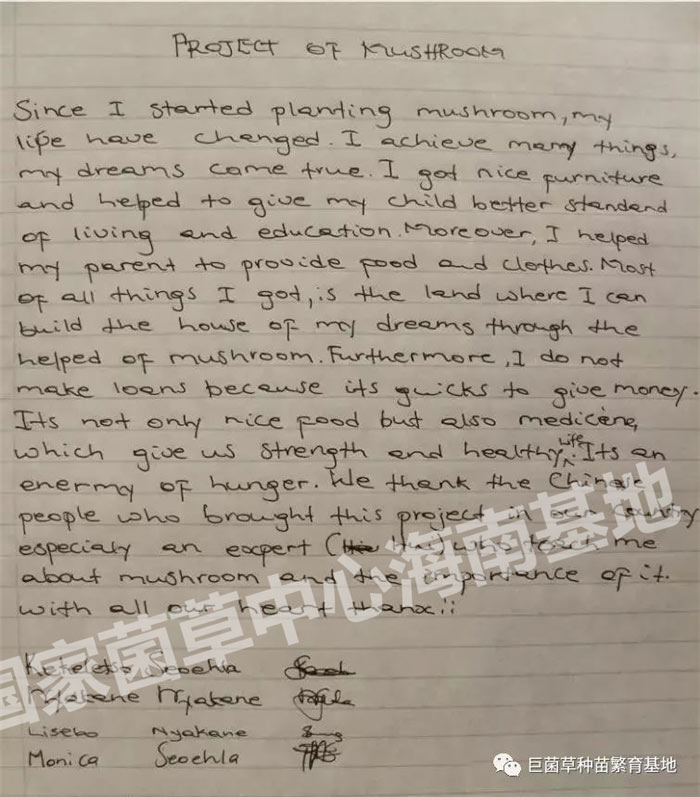 PROJECT OF MUSHROOM
Since I started planting mushroom, my
life have changed. I achieve many things,
my dreams came true. I got nice furniture
and helped to give my child better standend
of living and education. Moreover, I helped
my parent to provide food and clothes. Most
of all things I got, is the land where I can
build the house of my dreams through the
helped of mushroom. Furthermore, I do not
make loans because its quicks to give money.
Its not only nice food but also medicine,
which give us strength and healthy life. Its an
enermy of hunger. We thank the Chinese
people who brought this project in our country
especialy an expert (Hui) who teach me
about mushroom and the importance of it.
with all our heart thanx!!
国家菌草中心海南基地
Keteletso Seoehla
Nyakane Nyakane
Lisebo Nyakane
Monica Seoehla
巨菌草种苗繁育基地